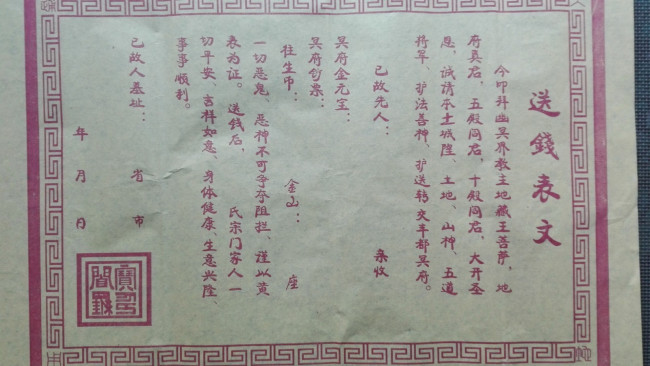 送錢表文
今叩拜幽冥界教主地藏王菩萨，地
府真君，五殿阎君，十殿阎君，大开圣
恩，诚请本土城隍、土地、山神、五道
将军、护法善神，护送转交丰都冥府。
已故先人： 亲收
冥府金元宝：
冥府钞票：
往生币： 金山： 座
一切恶鬼、恶神不可争夺阻拦，谨以黄
表为证。 送钱后， 氏宗门家人一
切平安、吉祥如意、身体健康、生意兴隆、
事事顺利。
已故人墓址： 省 市
年 月 日